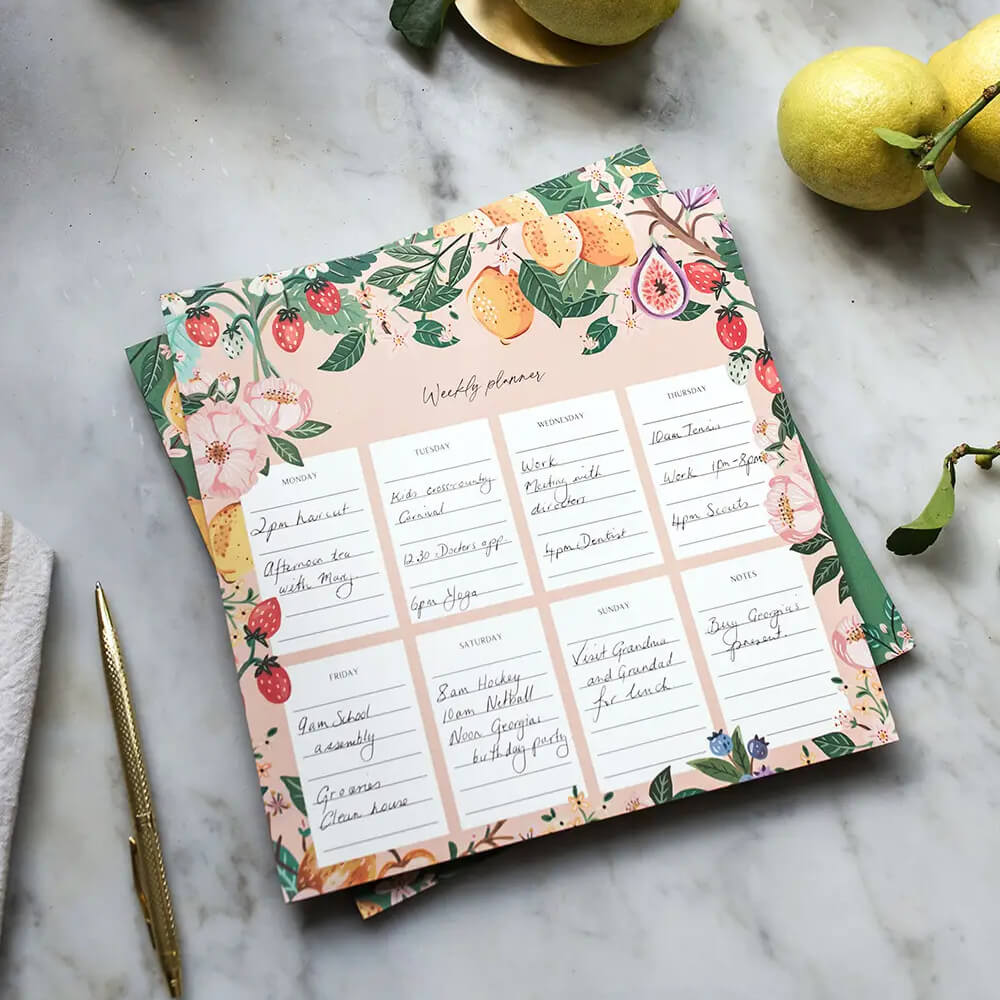 Weekly planner
MONDAY
2pm haircut
Afternoon tea
with Mary
TUESDAY
Kids cross-country
Carnival
12.30 Doctors app.
6pm Yoga
WEDNESDAY
Work
Meeting with
directors
4pm Dentist
THURSDAY
10am Tennis
Work 1pm-8pm
4pm Scouts
FRIDAY
9am School
assembly
Groceries
Clean house
SATURDAY
8am Hockey
10am Netball
Noon Georgias
birthday party
SUNDAY
Visit Grandma
and Grandad
for lunch
NOTES
Buy Georgias
present.